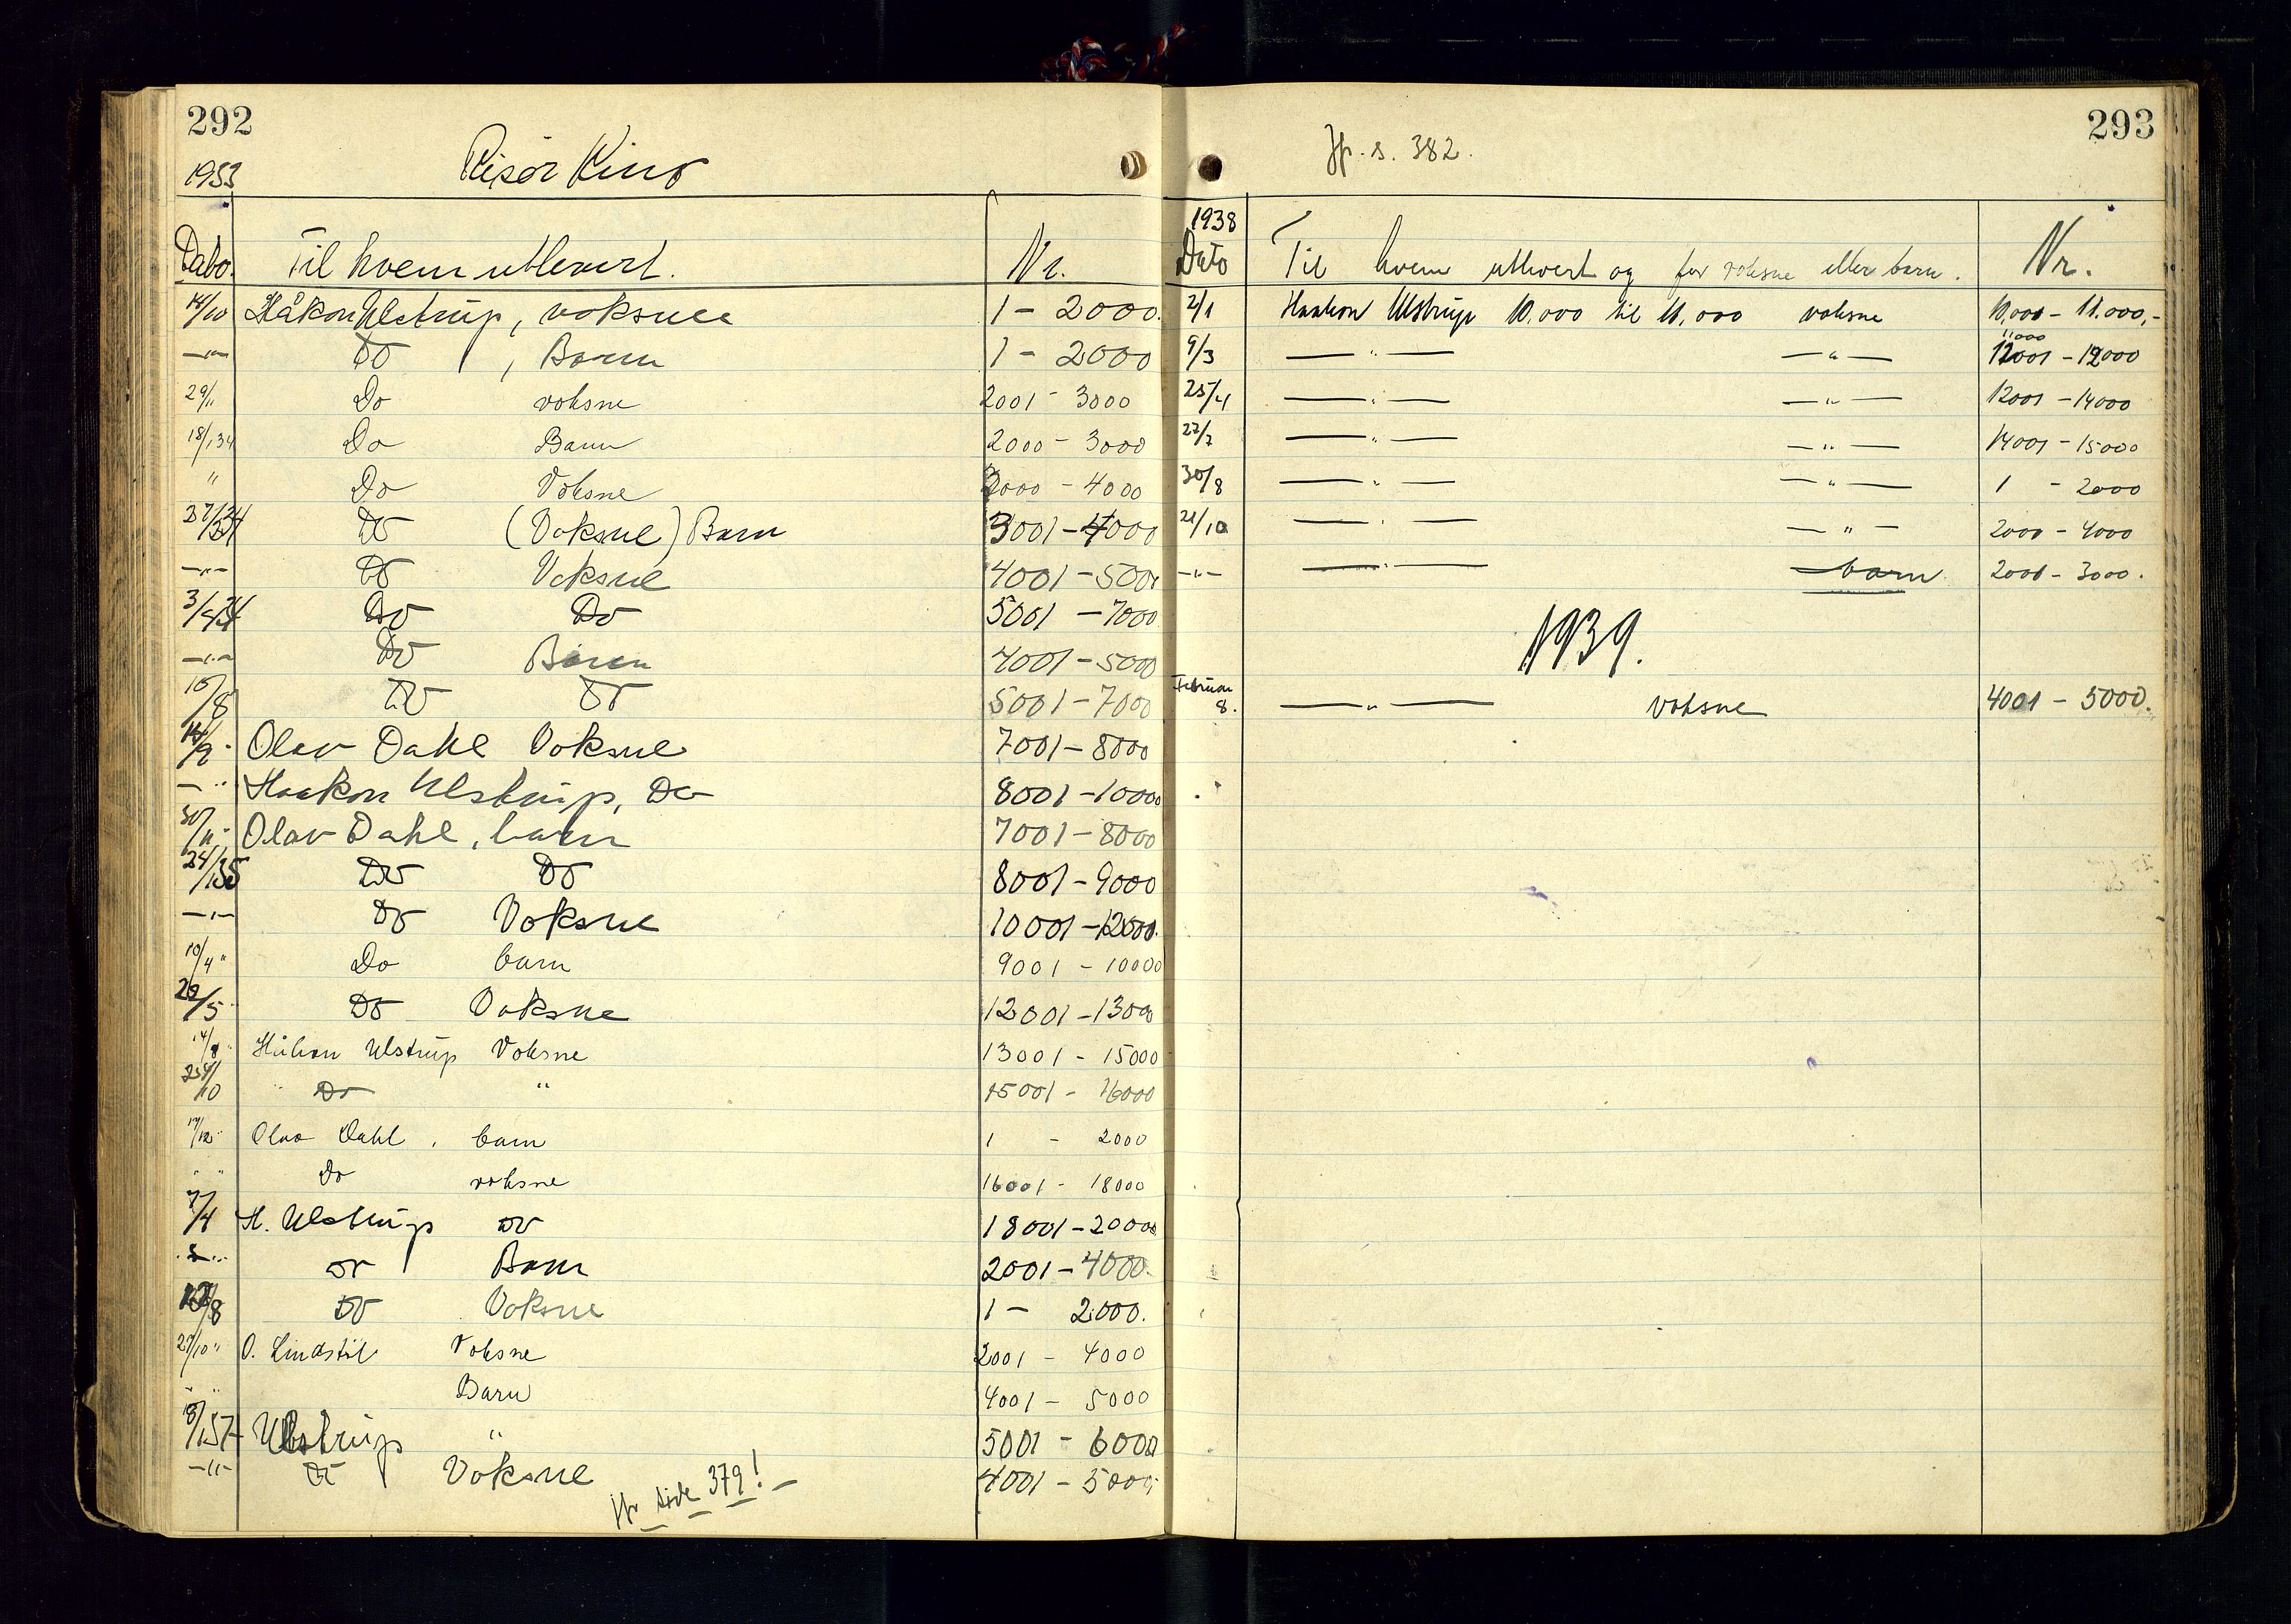 292
1933 Risør Kino
Dato. Til hvem utlevert. Nr.
14/10 Håkon Ulstrup, voksne 1 - 2000.
—"— Do , Barn 1 - 2000
29/11 Do voksne 2001 - 3000
18/1 34 Do Barn 2000 - 3000
" Do Voksne 3000 - 4000
Do (Voksne) Barn 3001 - 4000
—"— Do Voksne 4001 - 5000
Do Do 5001 - 7000
—"— Do Baren 4001 - 5000
10/8 Do Do 5001 - 7000
14/9 Olav Dahl Voksne 7001 - 8000
— " Haakon Ulstrup, Do 8001 - 10000
30/11 Olav Dahl, barn 7001 - 8000
24/1 35 Do Do 8001 - 9000
—"— Do Voksne 10001 - 12000.
10/4 " Do barn 9001 - 10000
22/5 Do Voksne 12001 - 13000
14/8 " Håkon Ulstrup Voksne 13001 - 15000
10 " Do " 15001 - 16000
17/12 " Olav Dahl , barn 1 - 2000
" " Do voksne 16001 - 18000
7/4 H. Ulstrup Do 18001 - 20000
Do Barn 2001 - 4000.
/8 Do Voksne 1 - 2000.
27/10 " O. Lindstöl Voksne 2001 - 4000
" " Barn 4001 - 5000
Ulstrup " 5001 - 6000
—"— Do Voksne 4001 - 5000
jfr side 379!
293
Jfr. s. 382.
1938
Dato Til hvem utlevert og for voksne eller barn. Nr.
2/1 Haakon Ulstrup 10.000 til 11.000 voksne 10,000 - 11.000,-
11000
9/3 —"— —"— 12001 - 12000
25/4 —"— —"— 12001 - 14000
22/7 —"— —"— 14001 - 15000
30/8 —"— —"— 1 - 2000
21/10 —"— —"— 2000 - 4000
—"— —"— barn 2000 - 3000.
1939.
Februar
8. —"— voksne 4001 - 5000.